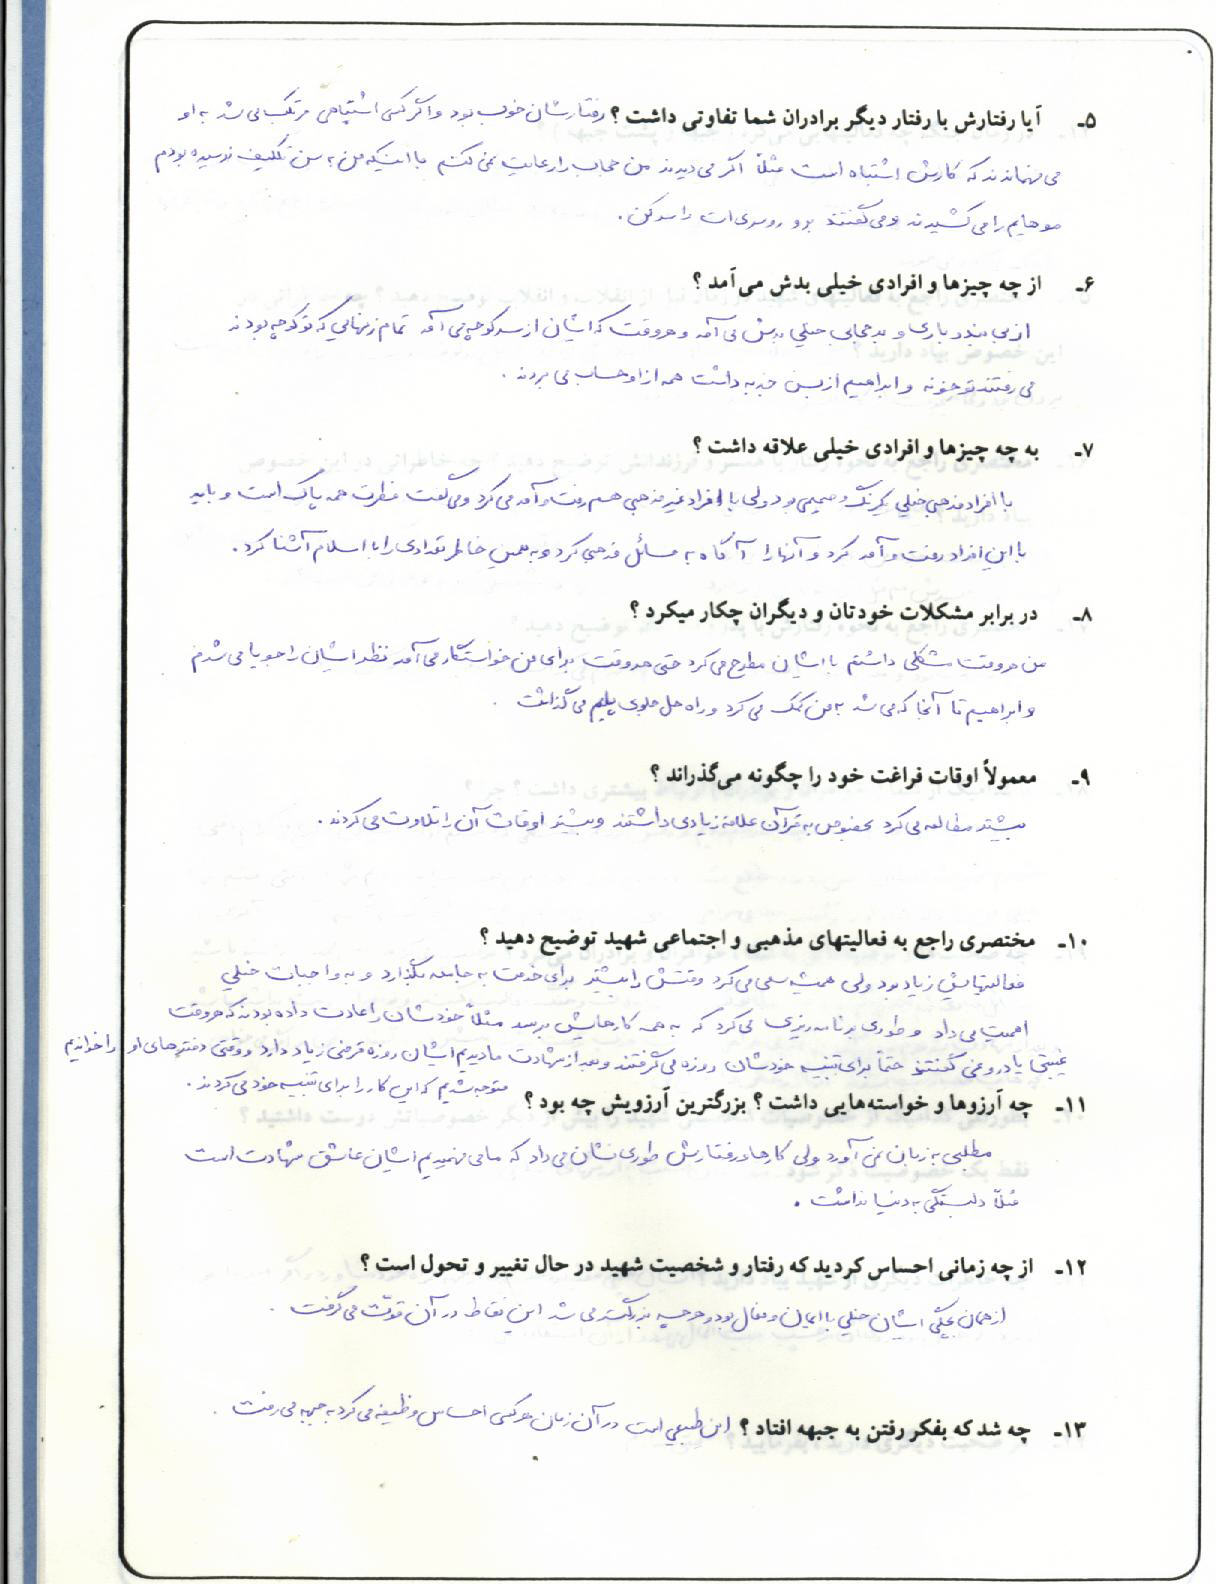 ۵ـ آیا رفتارش با رفتار دیگر برادران شما تفاوتی داشت ؟ رفتارشان خوب بود و اگر کسی اشتباهی مرتکب می شد به او
می فهماندند که کارش اشتباه است مثلاً اگر می دیدند من حجاب را رعایت نمی کنم با اینکه من به سن تکلیف نرسیده بودم
موهایم را می کشیدند و می گفتند برو روسری ات را سر کن .
۶ـ از چه چیزها و افرادی خیلی بدش می آمد ؟
از بی بندوباری و بدحجابی خیلی بدش می آمد و هر وقت که ایشان از سر کوچه می آمد تمام زنهایی که تو کوچه بودند
می رفتند تو خونه و ابراهیم از بس جذبه داشت همه از او حساب می بردند .
۷ـ به چه چیزها و افرادی خیلی علاقه داشت ؟
با افراد مذهبی خیلی یکرنگ و صمیمی بود ولی با افراد غیر مذهبی هم رفت و آمد می کرد و می گفت فطرت همه پاک است و باید
با این افراد رفت و آمد کرد و آنها را آگاه به مسائل مذهبی کرد و به همین خاطر تعدادی را با اسلام آشنا کرد .
۸ـ در برابر مشکلات خودتان و دیگران چکار میکرد ؟
من هر وقت مشکلی داشتم با ایشان مطرح می کرد حتی هر وقت برای من خواستگار می آمد نظر ایشان را جویا می شدم
و ابراهیم تا آنجا که می شد به من کمک می کرد و راه حل جلوی پایم می گذاشت .
۹ـ معمولاً اوقات فراغت خود را چگونه می‌گذراند ؟
بیشتر مطالعه می کرد بخصوص به قرآن علاقه زیادی داشتند و بیشتر اوقات آن را تلاوت می کردند .
۱۰ـ مختصری راجع به فعالیتهای مذهبی و اجتماعی شهید توضیح دهید ؟
فعالیتهایش زیاد بود ولی همیشه سعی می کرد وقتش را بیشتر برای خدمت به جامعه بگذارد و به واجبات خیلی
اهمیت می داد و طوری برنامه ریزی می کرد که به همه کارهایش برسد مثلاً خودشان را عادت داده بودند که هر وقت
غیبتی یا دروغی گفتند حتماً برای تنبیه خودشان روزه می گرفتند و بعد از شهادت ما دیدیم ایشان روزه قرضی زیاد دارد و وقتی دفترهای او را خواندیم
متوجه شدیم که این کار را برای تنبیه خود می کردند .
۱۱ـ چه آرزوها و خواسته‌هایی داشت ؟ بزرگترین آرزویش چه بود ؟
مطلبی به زبان نمی آورد ولی کارها و رفتارش طوری نشان می داد که ما می فهمیدیم ایشان عاشق شهادت است
مثلاً دلبستگی به دنیا نداشت .
۱۲ـ از چه زمانی احساس کردید که رفتار و شخصیت شهید در حال تغییر و تحول است ؟
از همان بچگی ایشان خیلی با ایمان و فعال بود و هر چه بزرگتر می شد این نقاط در آن قوت می گرفت .
۱۳ـ چه شد که بفکر رفتن به جبهه افتاد ؟ این طبیعی است در آن زمان هر کسی احساس وظیفه می کرد به جبهه می رفت .